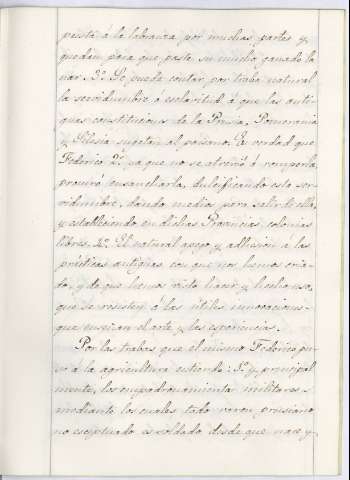 peustá á la labranza por muchas partes y
quedan para que paste su mucho ganado la
nar. 3º Se puede contar por traba natural
la servidumbre ó esclavitud á que las anti-
guas constituciones de la Prusia, Pomerania
y Silesia sugetan al paisano. Es verdad que
Federico 2º ya que no se atrevió á romperla,
procuró ensancharla, dulcificando esta ser-
vidumbre, dando medios para salir de ella,
y estableciendo en dichas Provincias, colonias
libres. 4º El natural apego y adhesion á las
prácticas antiguas con que nos hemos cria-
do, y de que hemos visto hacer y hecho uso,
que se resisten á las útiles innovaciones
que enseñan el arte y las esperiencias.
Por las trabas que el mismo Federico pu-
so á la agricultura entiendo: 1º y principal
mente, los empadronamientos militares
mediante los cuales todo varon prusiano
no esceptuado es soldado desde que nace y